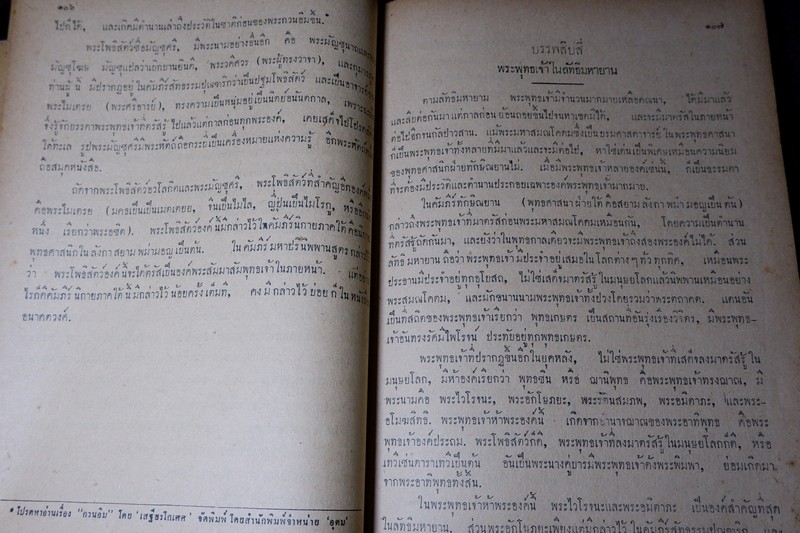 ๑๓๖
ไปก็ได้, และเกิดมีตำนานเล่าถึงประวัติในชาติก่อนของพระกวนอิมขึ้น.*
พระโพธิสัตว์ชื่อมัญชุศรี, มีพระนามอย่างอื่นอีก คือ พระมัญชุนาถและ
มัญชุโฆษ มัญชุแปลว่าเด็กยานยินดี, พระวาคิศวร (พระผู้ทรงวาจา),
ท่านผู้นี้ มีปรากฏอยู่ในคัมภีร์สัทธรรมปุณฑริกว่าเป็นปฐมโพธิสัตว์ และเป็นอาจารย์
พระไมเตรย (พระศรีอารย์), ทรงความเป็นหนุ่มอยู่เป็นนิตย์อนันตกาล,
ซึ่งรู้จักบรรดาพระพุทธเจ้าที่ตรัสรู้ไปแล้วแต่กาลก่อนทุกพระองค์, เคยเสด็จไปโปรด
ใต้ทะเล รูปพระมัญชุศรีมีพระหัตถ์ถือกระบี่เป็นเครื่องหมายแห่งความรู้ อีกพระหัตถ์
ถือสมุดหนังสือ.
ถัดจากพระโพธิสัตว์อวโลกิตและพระมัญชุศรี, พระโพธิสัตว์ที่สำคัญอีกองค์
คือพระไมเตรย
หนึ่ง เรียกว่าพระอชิต). พระโพธิสัตว์องค์นี้มีกล่าวไว้ในคัมภีร์นิกายภาคใต้
พุทธศาสนิกในลังกาสยามพม่ามอญเป็นต้น. ในคัมภีร์มหาปรินิพพานสูตร
ว่า พระโพธิสัตว์องค์นี้จะได้ตรัสเป็นองค์พระสัมมาสัมพุทธเจ้าในภายหน้า.
ไรก็ดีคัมภีร์นิกายภาคใต้นี้มีกล่าวไว้น้อยครั้งเต็มที, คงมีกล่าวไว้บ่อยก็ในหนัง
อนาคตวงศ์.
* โปรดหาอ่านเรื่อง "กวนอิม" โดย 'เสฐียรโกเศศ' จัดพิมพ์โดยสำนักพิมพ์จำหน่าย 'อุดม'
๑๓๗
บรรพสิบสี่
พระพุทธเจ้าในลัทธิมหายาน
ตามลัทธิมหายาน พระพุทธเจ้ามีจำนวนมากมายเหลือคณนา, ได้มีมาแล้ว
และสืบต่อกันมาแต่กาลก่อนย้อนถอยขึ้นไปจนหาเขตมิได้, และจะมีมาตรัสในภายหน้า
ต่อไปอีกจนกัลปาวสาน. แม้พระมหาสมณโคดมซึ่งเป็นบรมศาสดาจารย์ในพระพุทธศาสนา
ก็เป็นพระพุทธเจ้าทั้งหลายที่มีมาแล้วและจะมีต่อไป, หาใช่เด่นเป็นพิเศษเหมือนความนิยม
ของพุทธศาสนิกฝ่ายทักษิณยานไม่. เมื่อมีพระพุทธเจ้าหลายองค์เช่นนั้น, ก็เป็นธรรมดา
ที่จะต้องมีประวัติและตำนานประกอบเฉพาะองค์พระพุทธเจ้ามากมาย.
ในคัมภีร์ทักษิณยาน (พุทธศาสนาฝ่ายใต้คือสยามลังกาพม่ามอญเป็นต้น)
กล่าวถึงพระพุทธเจ้าที่มาตรัสก่อนพระมหาสมณโคดมเหมือนกัน, โดยความเป็นตำนาน
ที่ตรัสรู้ถัดกันมา, และยังว่าในพุทธกาลเดียวจะมีพระพุทธเจ้าถึงสองพระองค์ไม่ได้. ส่วน
ลัทธิมหายานถือว่าพระพุทธเจ้ามีประจำอยู่เสมอในโลกต่างๆทั่วทุกทิศ, เหมือนพระ
ประธานมีประจำอยู่ทุกโบสถ์, ไม่ใช่เสด็จมาตรัสรู้ในมนุษย์โลกแล้วนิพพานเหมือนอย่าง
พระสมณโคดม, และมักขนานนามพระพุทธเจ้าทั้งปวงโดยรวมว่าพระตถาคต. แดนอัน
เป็นที่สถิตของพระพุทธเจ้าเรียกว่า พุทธเกษตร เป็นสถานที่อันรุ่งเรืองวิจิตร, มีพระพุทธ-
เจ้าอันทรงรัศมีไพโรจน์ ประทับอยู่ทุกพุทธเกษตร.
พระพุทธเจ้าที่ปรากฏขึ้นอีกในยุคหลัง, ไม่ใช่พระพุทธเจ้าที่เสด็จลงมาตรัสรู้ใน
มนุษยโลก, มีห้าองค์เรียกว่า พุทธชิน หรือ ฌานิพุทธ คือพระพุทธเจ้าทรงฌาณ, มี
พระนามคือ พระไวโรจนะ, พระอักโษภยะ, พระรัตนสมภพ, พระอมิตาภะ, และพระ-
อโมฆสิทธิ. พระพุทธเจ้าห้าพระองค์นี้ เกิดจากอำนาจฌาณของพระอาทิพุทธ คือพระ
พุทธเจ้าองค์ประถม. พระโพธิสัตว์ก็ดี, พระพุทธเจ้าที่ลงมาตรัสรู้ในมนุษย์โลกก็ดี, หรือ
เทวีเช่นดาราเทวีเป็นต้น อันเป็นพระนางคู่บารมีพระพุทธเจ้าดังพระพิมพา, ย่อมเกิดมา
จากพระอาทิพุทธทั้งสิ้น.
ในพระพุทธเจ้าห้าพระองค์นี้ พระไวโรจนะและพระอมิตาภะ เป็นองค์สำคัญที่สุด
ในลัทธิมหายาน. ส่วนพระอักโษภยะเพียงแต่มีกล่าวไว้ในคัมภีร์สัทธรรมปุณฑริก และ